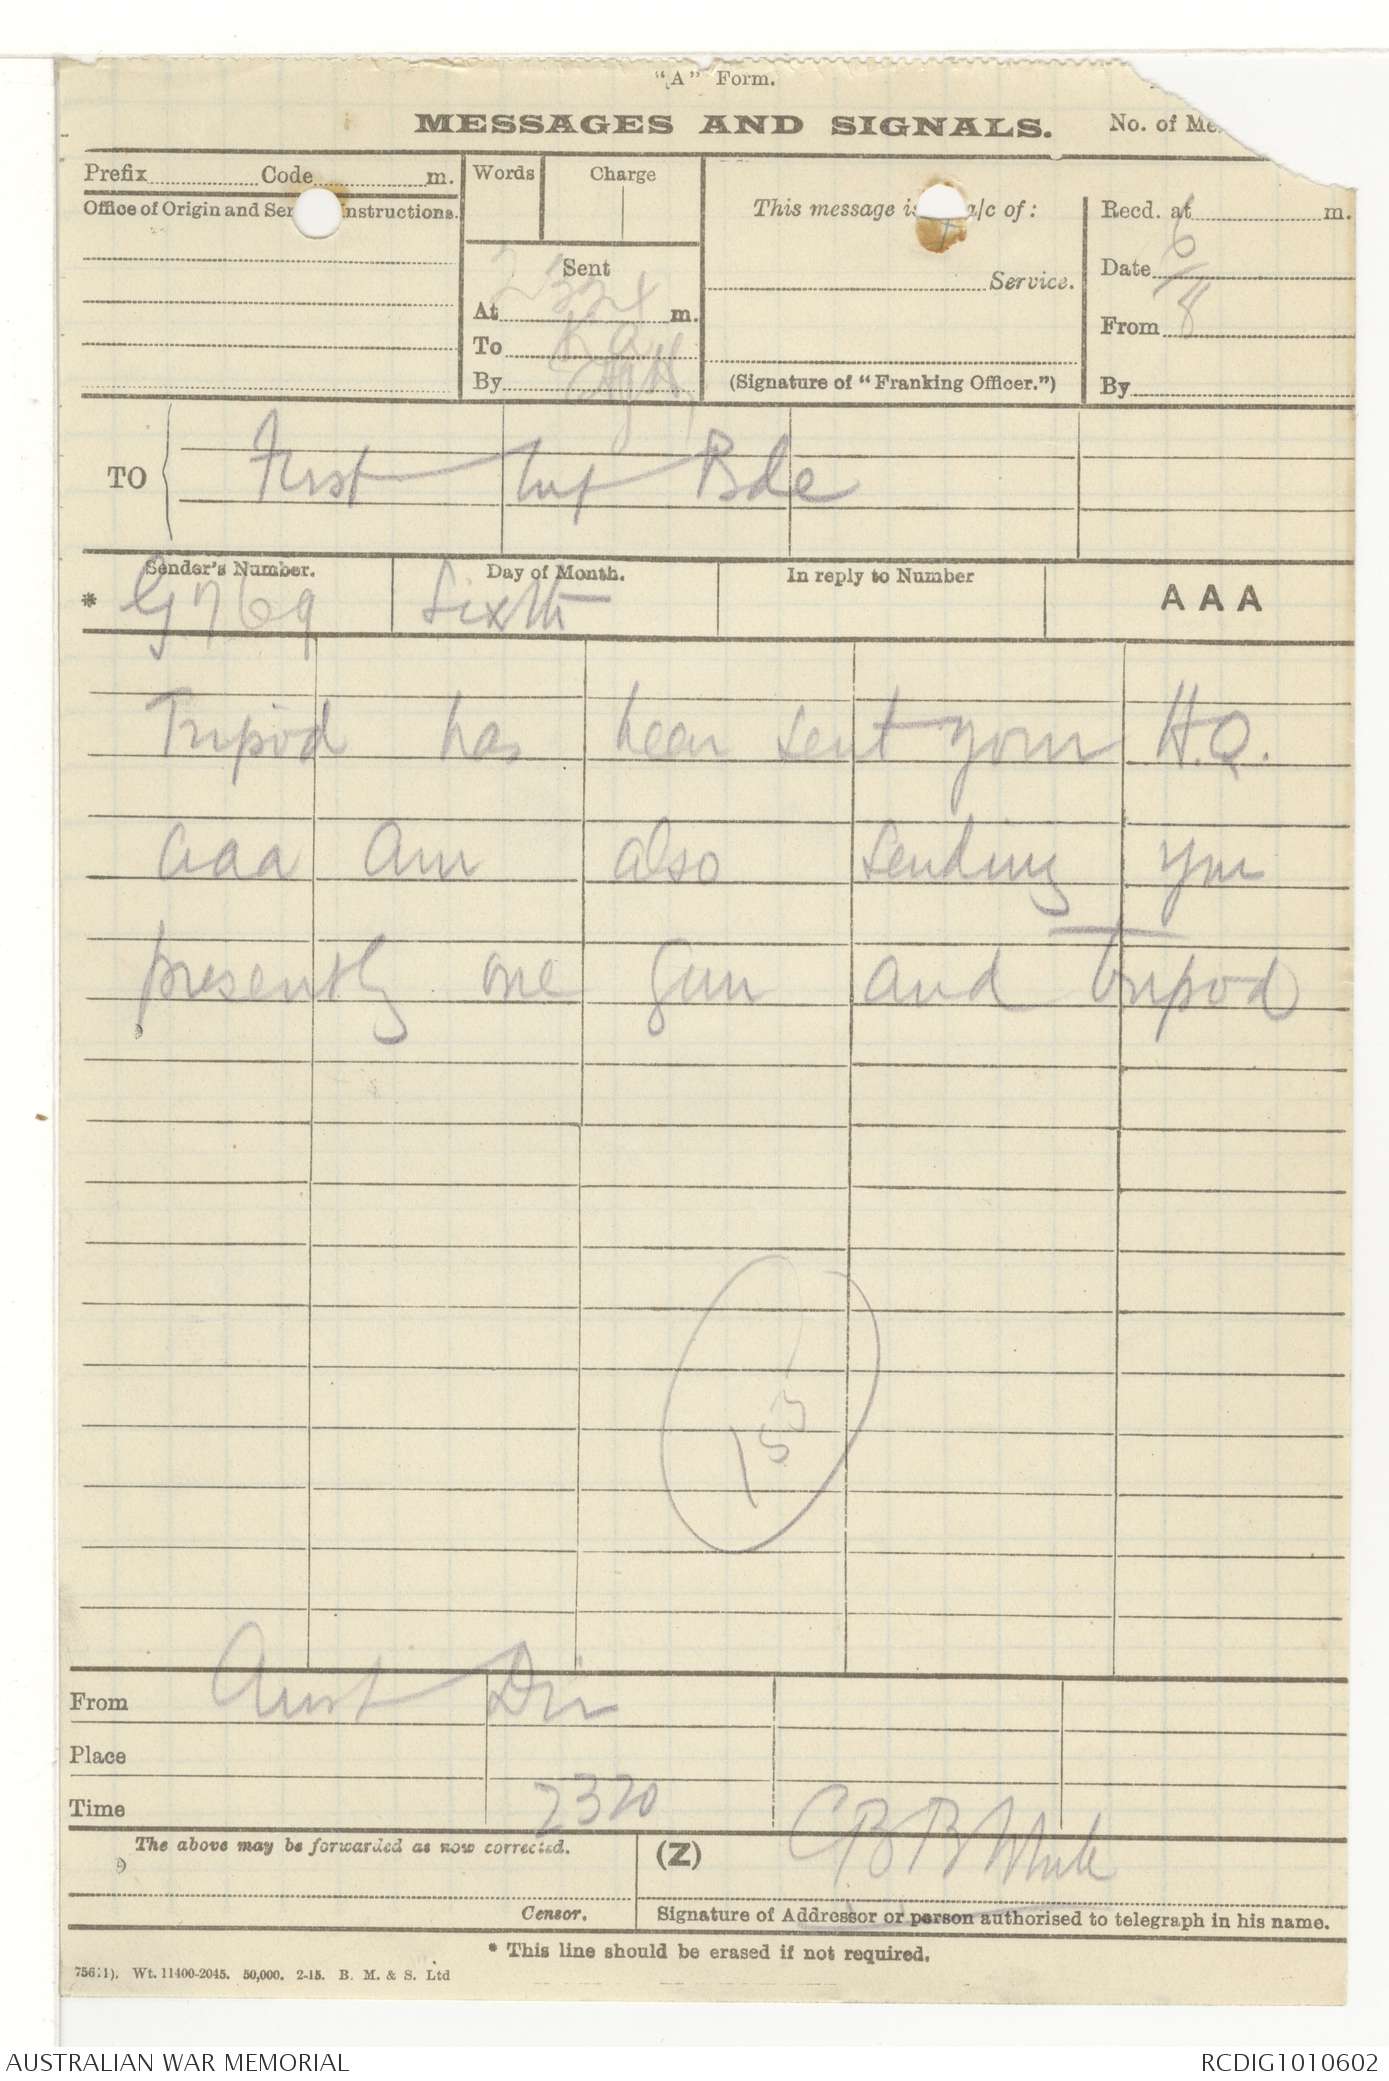 "A" Form.
MESSAGES AND SIGNALS. No. of Me
Prefix Code m. Words Charge
Office of Origin and Ser Instructions.
This message is a/c of :
Recd. at m.
Sent
Service.
Date 6/8
At m.
From
To
By
(Signature of "Franking Officer.")
By
TO First Inf Bde
Sender's Number. Day of Month. In reply to Number
* G769 Sixth AAA
Tripod has been sent your H.Q.
aaa Am also sending you
presently one gun and tripod
153
From Aust Div
Place
Time 2320
The above may be forwarded as now corrected. (Z) CBB White
Censor. Signature of Addressor or person authorised to telegraph in his name.
* This line should be erased if not required.
756(1). Wt. 11400-2045. 50,000. 2-15. B. M. & S. Ltd
AUSTRALIAN WAR MEMORIAL RCDIG1010602